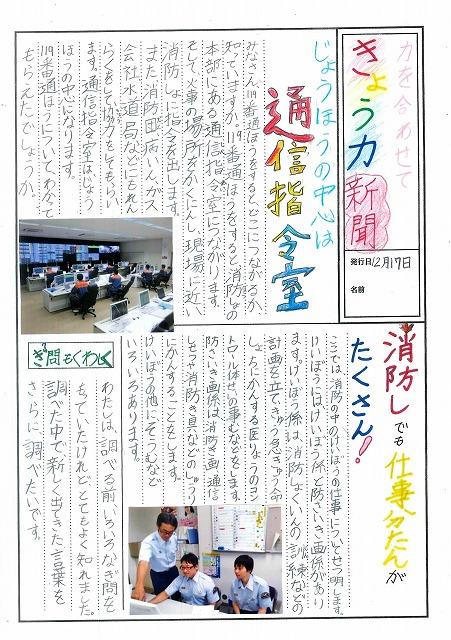 力を合わせて
きょう力
新聞
発行日 12月17日
名前
じょうほうの中心は
通信指令室
みなさん119番通ほうをするとどこにつながるか
知っていますか。119番通ほうをすると消防しょの
本部にある通信指令室につながります。
そして火事の場所をかくにんし、現場に近い
消防しょに指令を出します。
また消防団、病いん、ガス
会社、水道局などにもれん
らくをして協力をしてもらい
ます。通信指令室はじょう
ほうの中心になります。
119番通ほうについてわかって
もらえたでしょうか。
消防しでも仕事分たんが
たくさん!
ここでは消防の中のけいぼうの仕事についてせつ明します。
けいぼうにはけいぼう係と防さいき画係があり
ます。けいぼう係は消防しょくいんの訓練などの
計画を立て、きゅう急きゅう命
しょちにかんする医りょうのコン
トロール体せいの事むなどをします。
防さいき画係は消防き画、通信
しせつや消防き具などのしゅうり
にかんすることをします。
けいぼうの他にそうむなど
いろいろあります。
ぎ問もくわしく
わたしは、調べる前いろいろなぎ問を
もっていたけれどとてもよく知れました。
調べた中で新しく出てきた言葉を
さらに調べたいです。